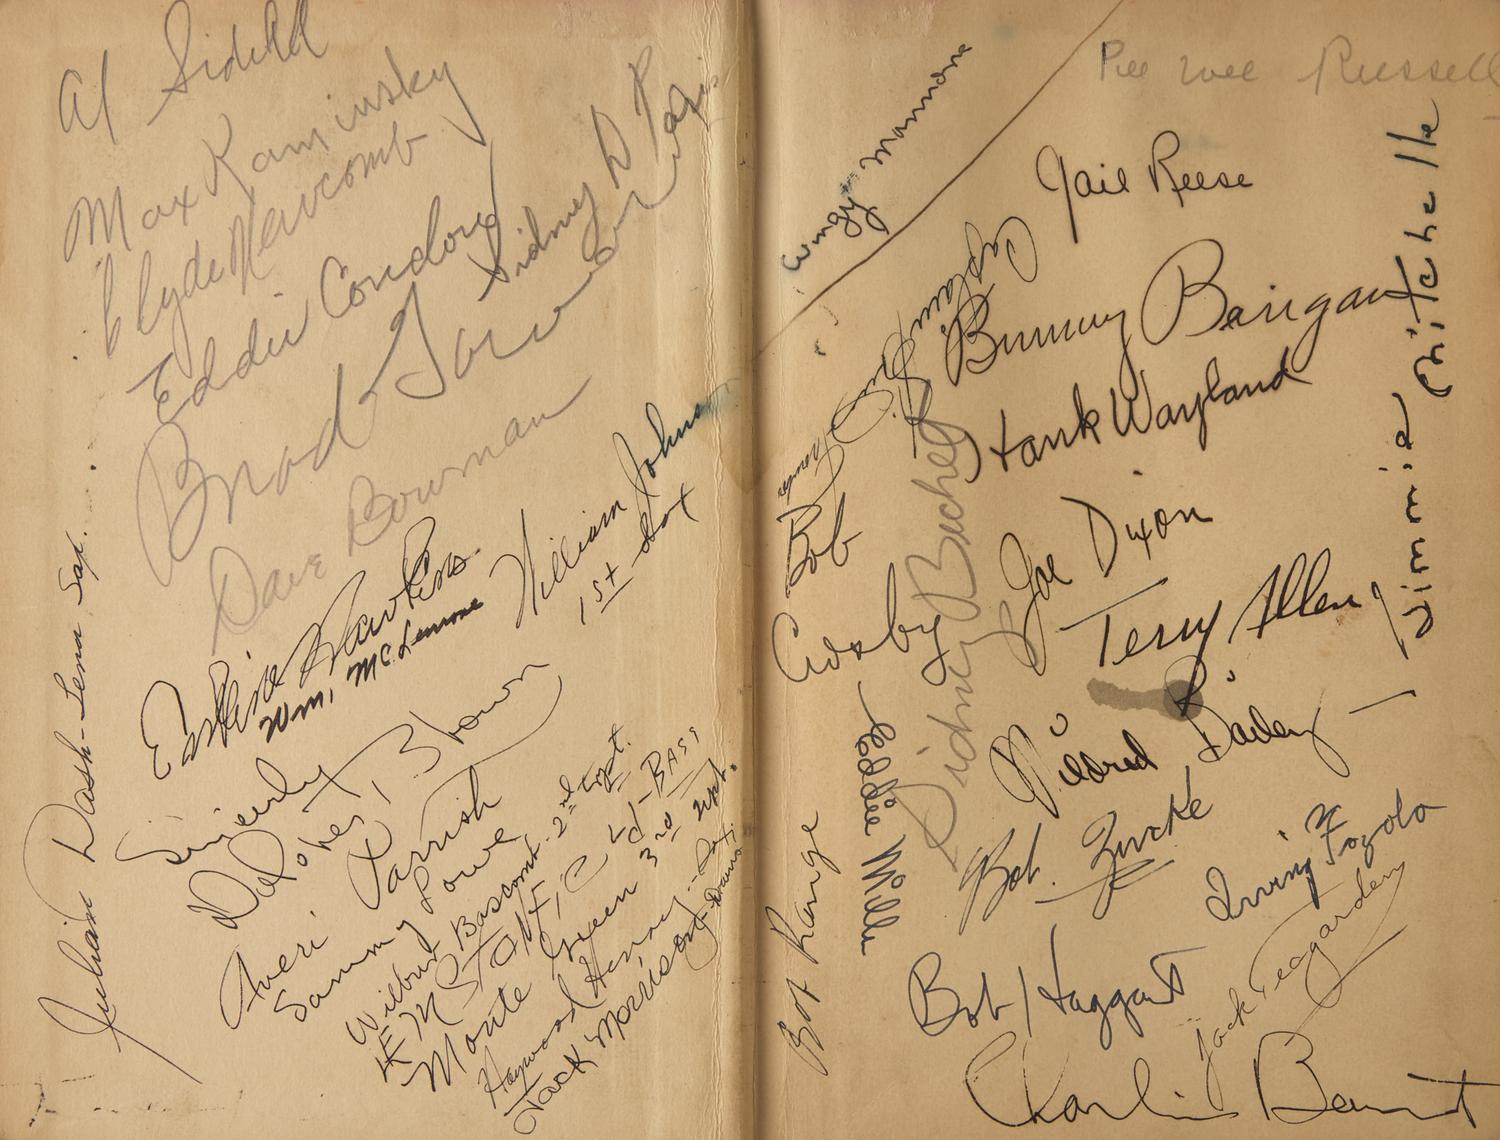 Al Sidell
Max Kaminsky
Clyde Newcomb
Eddie Condon
Brad Gowans
Sidney D Paris
Dave Bowman
William Johnson
1st Sax
Erskine Hawkins
Wm. McLemore
Sincerly
Dolphes, Brown
Averi Parrish
Sammy Lowe
Wilbur Bascomb - 2nd trpt.
LEM STANFIELD - BASS
Monte Green 3rd
Haywood Henry
Jack Morrison Drums
Julian Dash - Tenor Sax.
Pee wee Russell
Wingy Mannone
Gail Reese
Captain
Bunny Berigan
Hank Wayland
Bob Crosby
Sidney Bechet
Joe Dixon
Terry Allen
Jimmie Mitchelle
Mildred Bailey
Eddie Miller
Bob Zurke
Irving Fazola
Bob Range
Bob Haggart
Jack Teagarden
Charlie Barnet